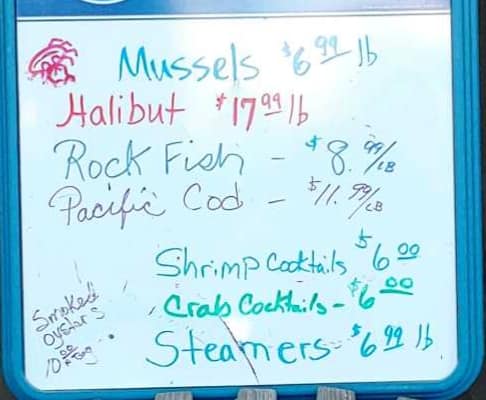 Mussels $6.99 lb
Halibut $17.99 lb
Rock Fish - $8.99/LB
Pacific Cod - $11.99/LB
Shrimp Cocktails $6.00
Crab Cocktails - $6.00
Steamers - $6.99 lb
Smoked
Oysters
10.00